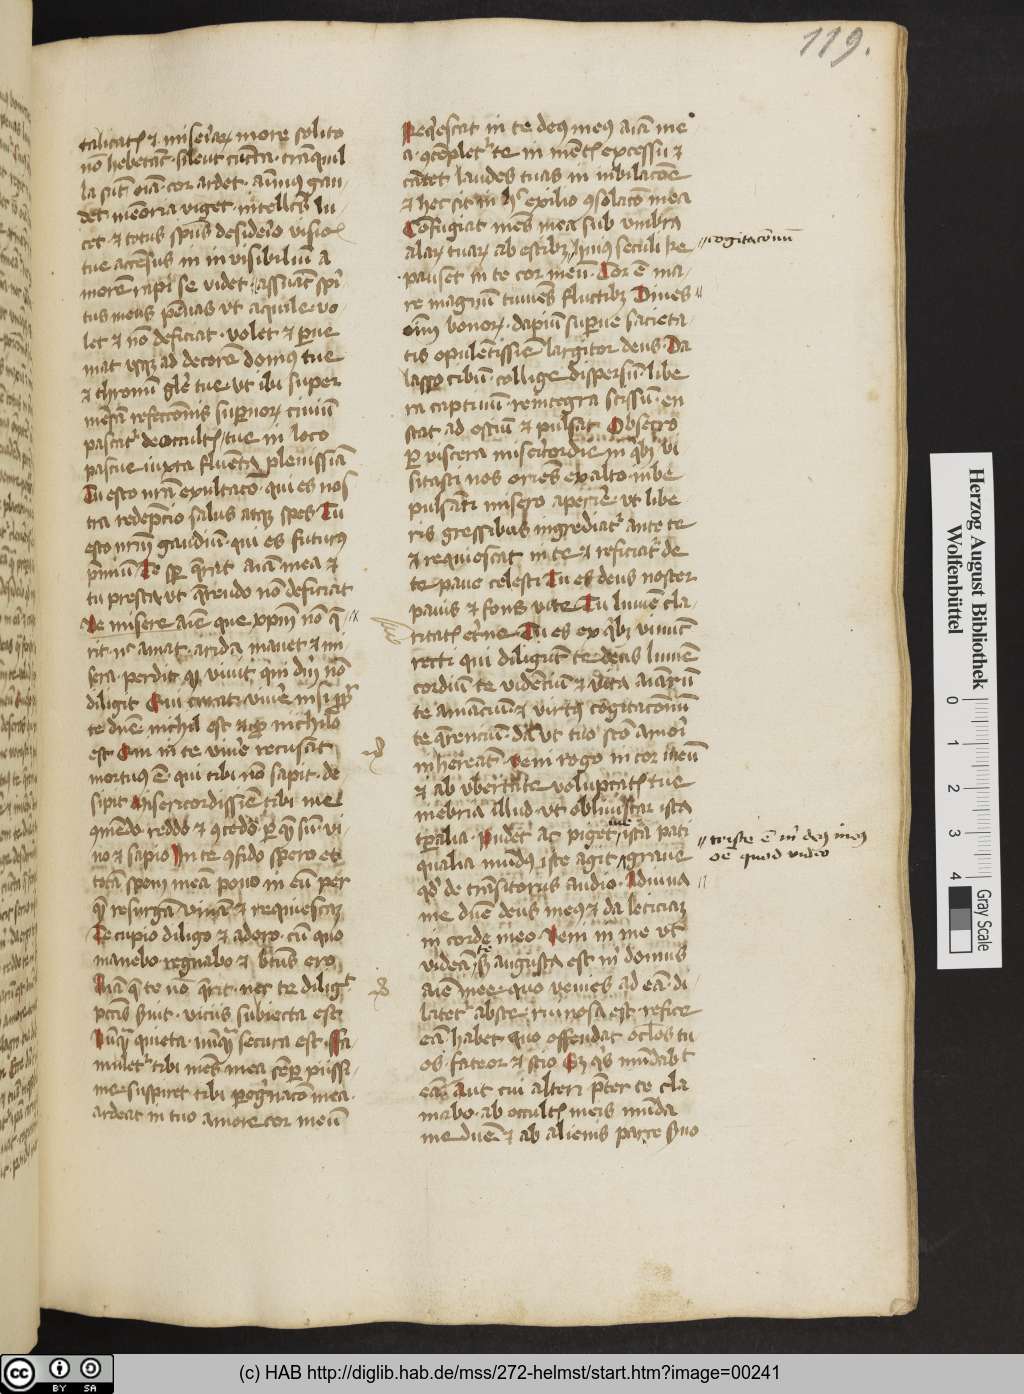 119.
talitatis et miseriarum more solito
non hebetant. silent cuncta. tranquil
la sunt omnia. cor ardet. animus gau
det memoria viget. intellectus lu
cet. et totus spiritus desiderio visionis
tue accensus in invisibilium a
morem rapi se videt. assumat spiri
tus meus pennas ut aquile. vo
let et non deficiat. volet et perve
niat usque ad decorem domus tue
et thronum glorie tue. ut ibi super
mensam refeccionis supernorum civium
pascatur de occultis tuis in loco
pascue iuxta fluenta plenissima
Tu esto nostra exultacio. qui es nos
tra redempcio salus atque spes Tu
esto nostrum gaudium. qui es futurus
premium. Te semper querat anima mea et
tu presta ut querendo non deficiat
Ve misere anime que christum non que
rit nec amat. arida manet et mi
sera. perdit quod vivit qui te deum non
diligit Qui curat vivere nisi propter
te domine. nichil est et pro nichilo
est Qui in te vivere recusat
mortuus est. qui tibi non sapit. de
sipit Misericordissime tibi me
commendo reddo et concedo per quem sum. vi
vo et sapio In te confido spero et
totam spem meam pono in eum per
quem resurgam vivam et requiescam
Te cupio diligo et adoro. cum quo
manebo regnabo et beatus ero
Anima que te non querit. nec te diligit
peccatis servit. viciis subiecta est
Nunquam quieta. nunquam secura est. Fa
muletur tibi mens mea semper piissi
me. suspiret tibi peregrinacio mea.
ardeat in tuo amore cor meum
Requiescat in te deus meus anima me
a. contempletur te in mentis excessu et
cantet laudes tuas in iubilacione
et hec sit in hoc exilio consolacio mea
Confugiat mens mea sub umbra
alarum tuarum ab estibus huius seculi Re
pauset in te cor meum. Cor est ma
re magnum tumens fluctibus Dives
omnium bonorum. dapium superne sacieta
tis opulentissime largitor deus. Da
lasso cibum. collige dispersum. libe
ra captivum. reintegra scissum. en
stat ad ostium et pulsat. Obsecro
per viscera misericordie in quibus vi
sitasti nos oriens ex alto. iube
pulsanti misero aperire. ut libe
ris gressibus ingrediatur ante te
et requiescat in te et reficiatur de
te pane celesti Tu es deus noster
panis et fons vite. Tu lumen cla
ritatis eterne. Tu es ex quibus vivunt
recti qui diligunt te. Deus lumen
cordium te videncium et vita animarum
te amancium et virtus cogitacionum
te querencium. da ut tuo sancto amori
inhereat. Veni rogo in cor meum
et ab ubertate voluptatis tue
inebria illud ut obliviscar ista
temporalia. Pudet me ac piget ista pati
qualia mundus iste agit grave
quod de transitoriis audio. Adiuva
me domine deus meus et da leticiam
in corde meo. Veni in me ut
videam te sed angusta est mihi domus
anime mee quo venies ad eam di
latetur abs te. ruinosa est refice
eam habet quo offendat oculos tu
os. fateor et scio Sed quis mundabit
eam Aut cui alteri preter te cla
mabo. ab occultis meis munda
me domine. et ab alienis parce servo
cogitacionum
triste est mihi deus meus
quod video
Herzog August Bibliothek
Wolfenbüttel
0 1 2 3 4
Gray Scale
cc BY SA
(c) HAB http://diglib.hab.de/mss/272-helmst/start.htm?image=00241